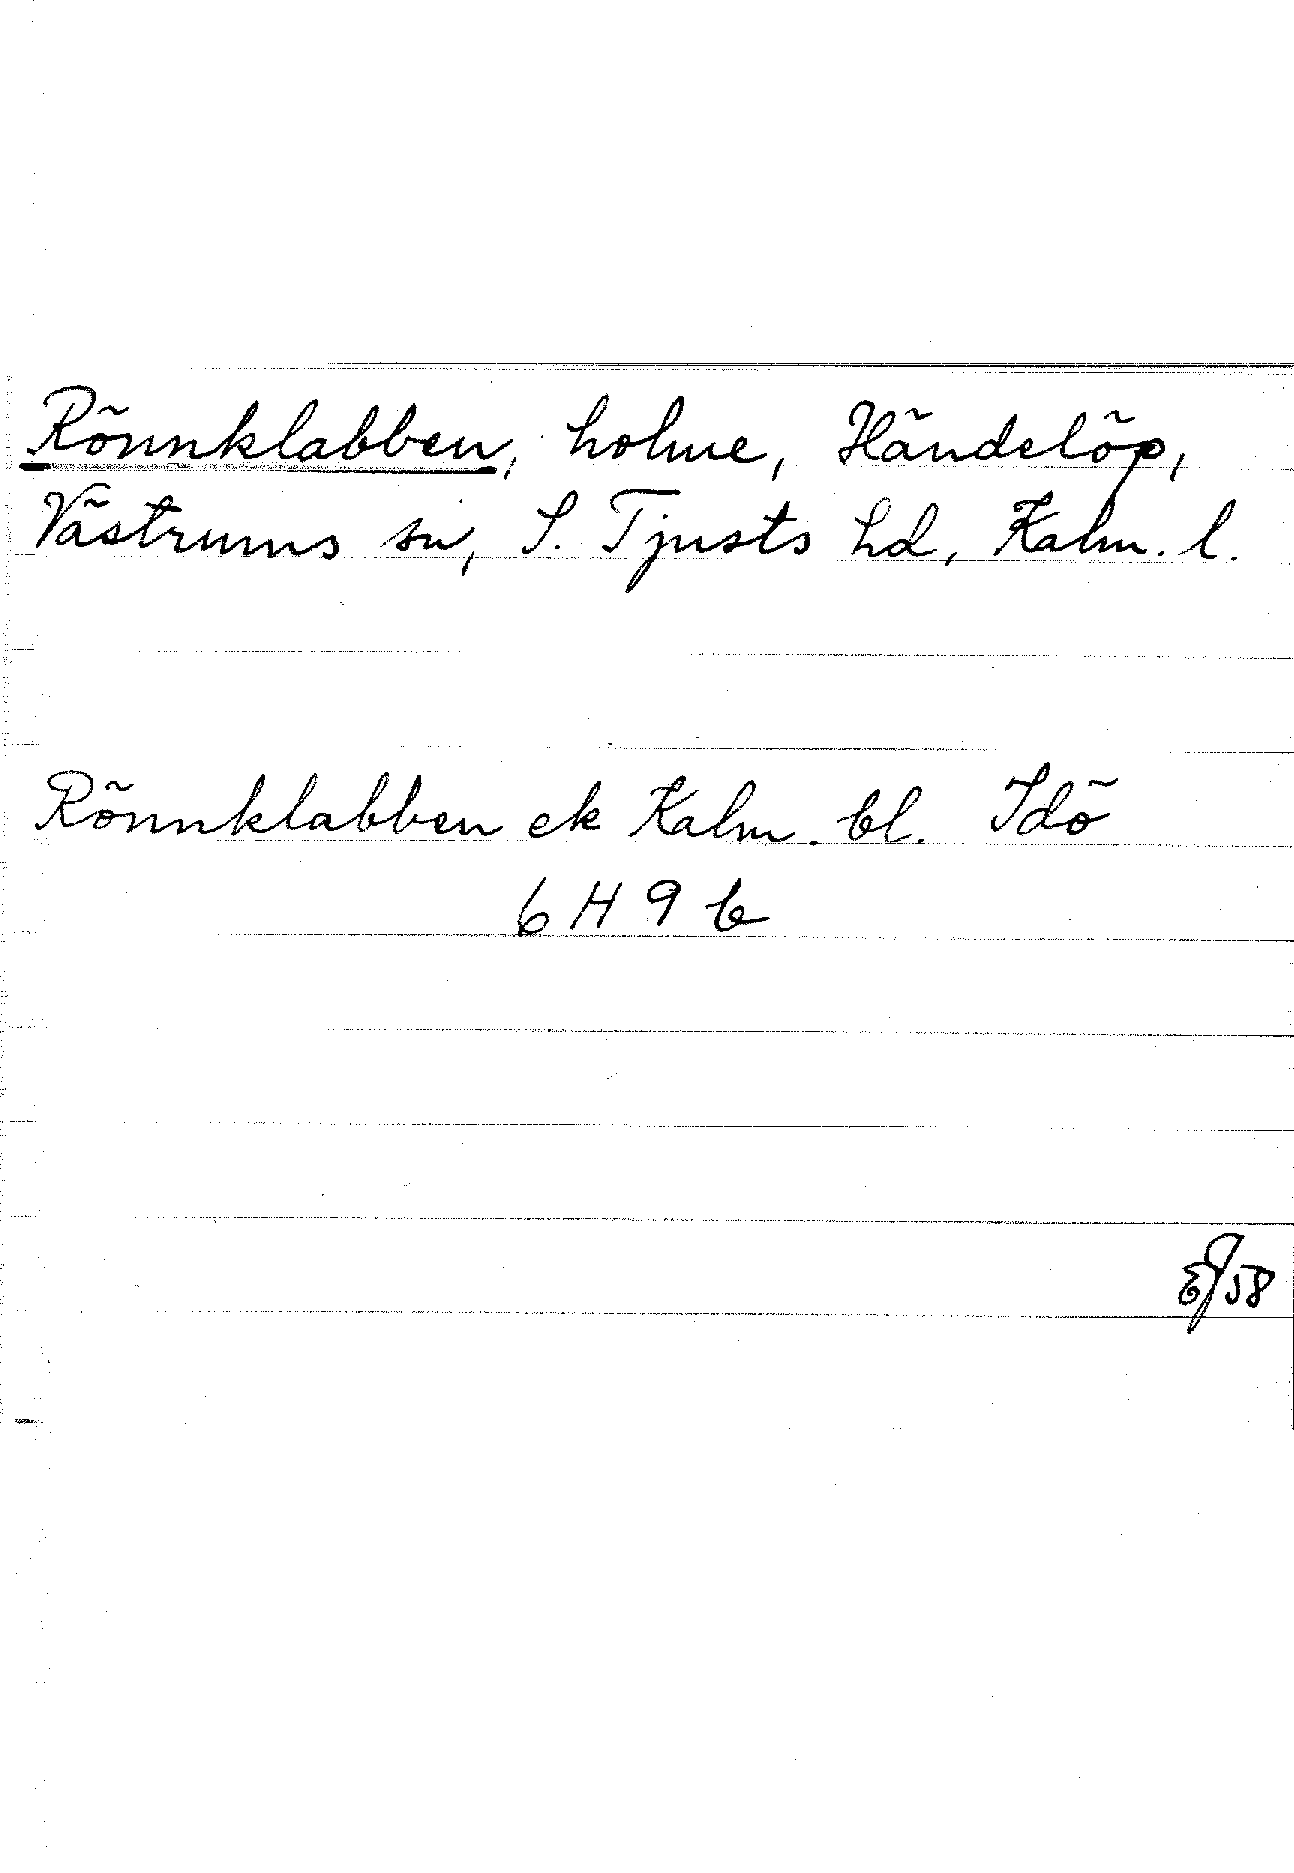 Rönnklabben, holme, Händelöp,
Västrums sn, S. Tjusts hd, Kalm. l.
Rönnklabben ek Kalm. bl. Idö
6 H 9 b
58